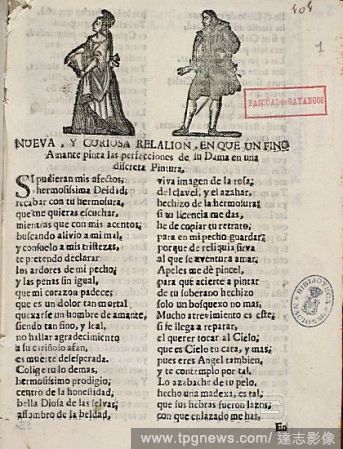 104
1
PASCUAL DE GAYANGOS
NUEVA, Y CURIOSA RELALION, EN QUE UN FINO
Amante pinta las perfecciones de su Dama en una
discreta Pintura.
SI pudieran mis afectos,
hermosissima Deidad,
recabar con tu hermosura,
que me quieras escuchar,
mientras que con mis acentos,
buscando alivio a mi mal,
y consuelo a mis tristezas,
te pretendo declarar
los ardores de mi pecho,
y las penas sin igual,
que mi corazon padece;
que es un dolor tan mortal
quexarse un hombre de amante,
siendo tan fino, y leal,
no hallar agradecimiento
a su cariñoso afan,
es muerte desesperada.
Colige tu lo demas,
hermosissimo prodigio,
centro de la honestidad,
bella Diosa de las selvas,
assombro de la beldad,
viva imagen de la rosa,
del clavel, y el azahar,
hechizo de la hermosura;
si tu licencia me das,
he de copiar tu retrato,
para en mi pecho guardar,
porque de reliquia sirva
al que se aventura amar.
Apeles me dè pincel,
para què acierte a pintar
de tu soberano hechizo
solo un bosquexo no mas.
Mucho atrevimiento es este,
si se llega a reparar,
el querer tocar al Cielo;
que es Cielo tu cara, y mas,
pues eres Angel tambien,
y te contemplo por tal.
Lo azabache de tu pelo,
hecho una madexa, es tal,
que sus hebras fueron lazos,
con que enlazado me has.
En
BIBLIOTECA
www.tpgnews.com/ 達志影像